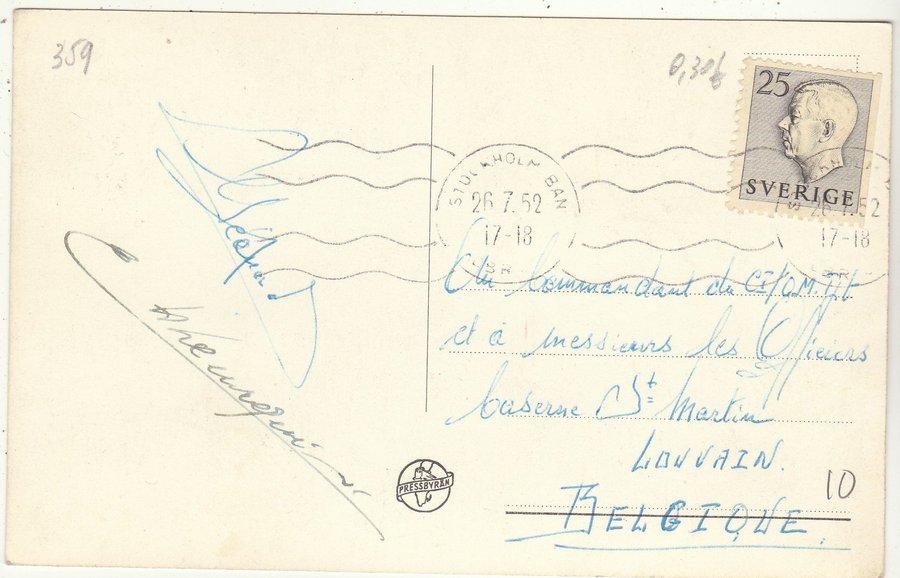 359
0,30
25
SVERIGE
STOCKHOLM BAN
26.7.52
17-18
26.7.52
17-18
Au Commandant du
et à messieurs les Officiers
Caserne St Martin
LOUVAIN.
BELGIQUE
10
PRESSBYRÅN